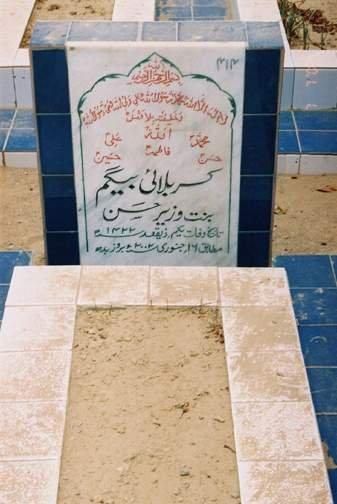 ۴۱۴
الله
بسم الله الرحمن الرحيم
لا اله الا الله محمد رسول الله علی ولی الله وصی رسول الله
وخلیفتہ بلا فصل
محمد الله علی
حسن فاطمہ حسین
کربلائی بیگم
بنت وزیر حسن
تاریخ وفات یکم ذیقعد ۱۴۲۲ھ
مطابق ۱۶ جنوری ۲۰۰۲ء بروز بدھ